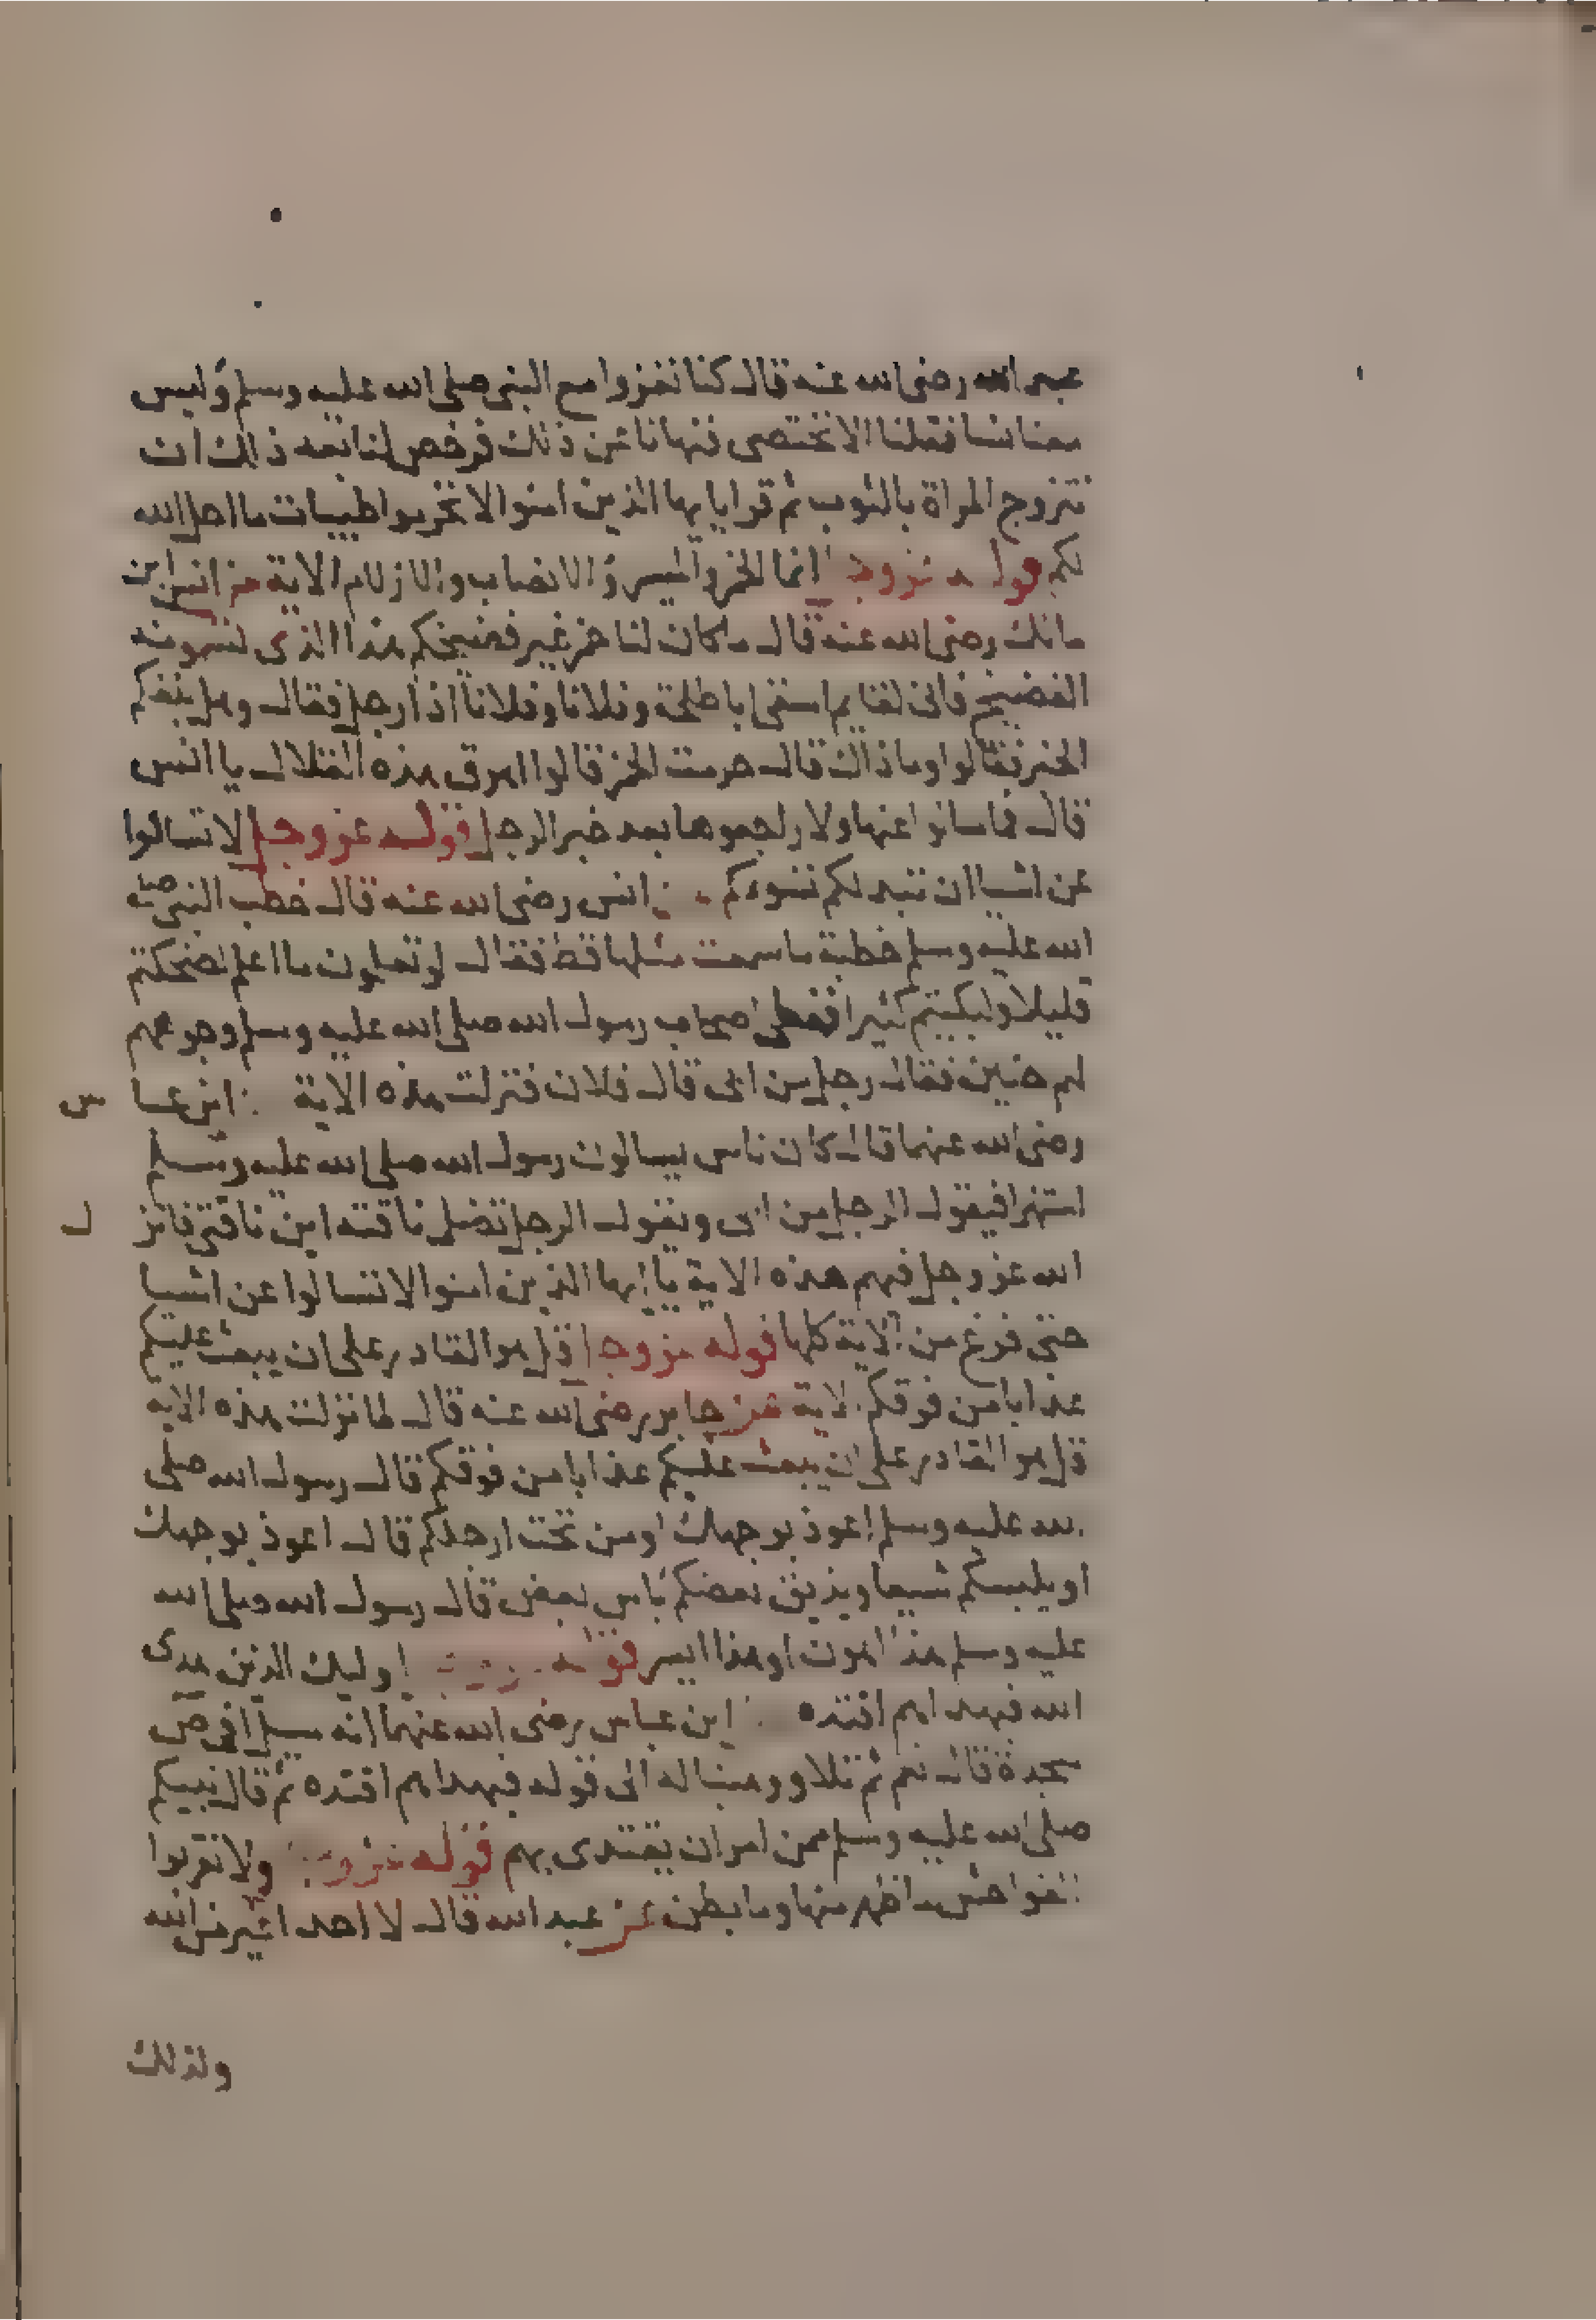 عبد الله رضى الله عنه قال كنا نغزوا مع النبى صلى الله عليه وسلم وليس
معنا نسا فقلنا الا نختصى فنهانا عن ذلك فرخص لنا بعد ذلك ان
نتزوج المراة بالثوب ثم قرا يايها الذين امنوا لا تحرموا طيبات ما احل الله
لكم قوله عز وجل انما الخمر والميسر والانصاب والازلام الاية عن انس بن
مالك رضى الله عنه قال ما كان لنا خمر غير فضيخكم هذا الذى تسمونه
الفضيخ فانى لقايم اسقى ابا طلحة وفلانا وفلانا اذ ا رجل فقال وهل بلغكم
الخبر فقالوا وما ذاك قال حرمت الخمر قالوا اهرق هذه القلال يا انس
قال فما سالوا عنها ولا راجعوها بعد خبر الرجل قوله عز وجل لا تسالوا
عن اشيا ان تبد لكم تسوءكم عن انس رضى الله عنه قال خطب النبى صلى
الله عليه وسلم خطبة ما سمعت مثلها قط فقال لو تعلمون ما اعلم لضحكتم
قليلا ولبكيتم كثيرا فغطى اصحاب رسول الله صلى الله عليه وسلم وجوههم
لهم حنين فقال رجل من ابى قال فلان فنزلت هذه الاية ابن عباس
رضى الله عنهما قال كان ناس يسالون رسول الله صلى الله عليه وسلم
استهزا فيقول الرجل من ابى ويقول الرجل تضل ناقته اين ناقتى فانزل
الله عز وجل فيهم هذه الاية يا ايها الذين امنوا لا تسالوا عن اشيا
حتى فرغ من الاية كلها قوله عز وجل قل هو القادر على ان يبعث عليكم
عذابا من فوقكم الاية عن جابر رضى الله عنه قال لما نزلت هذه الاية
قل هو القادر على ان يبعث عليكم عذابا من فوقكم قال رسول الله صلى
الله عليه وسلم اعوذ بوجهك او من تحت ارجلكم قال اعوذ بوجهك
او يلبسكم شيعا ويذيق بعضكم باس بعض قال رسول الله صلى الله
عليه وسلم هذا اهون او هذا ايسر قوله عز وجل اوليك الذين هدى
الله فبهداهم اقتده ابن عباس رضى الله عنهما انه سيل افى ص
سجدة قال نعم ثم تلا ووهبنا له الى قوله فبهداهم اقتده ثم قال نبيكم
صلى الله عليه وسلم ممن امر ان يقتدى بهم قوله عز وجل ولا تقربوا
الفواحش ما ظهر منها وما بطن عن عبد الله قال لا احد اغير من الله
ولذلك